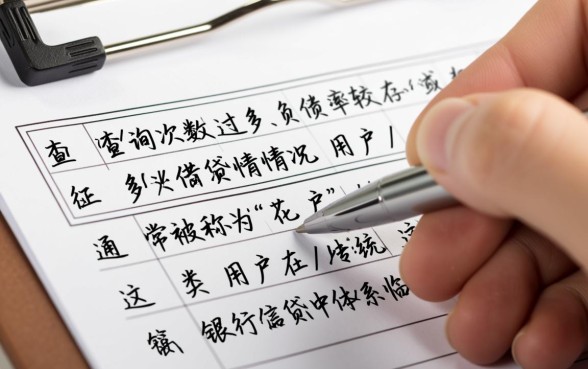 查 查询次数过多、负债率较存/或
征 多火借贷情情况 用户/
通 常被称为“花户”
这 类用户在/传统 这
银行信贷中体系临